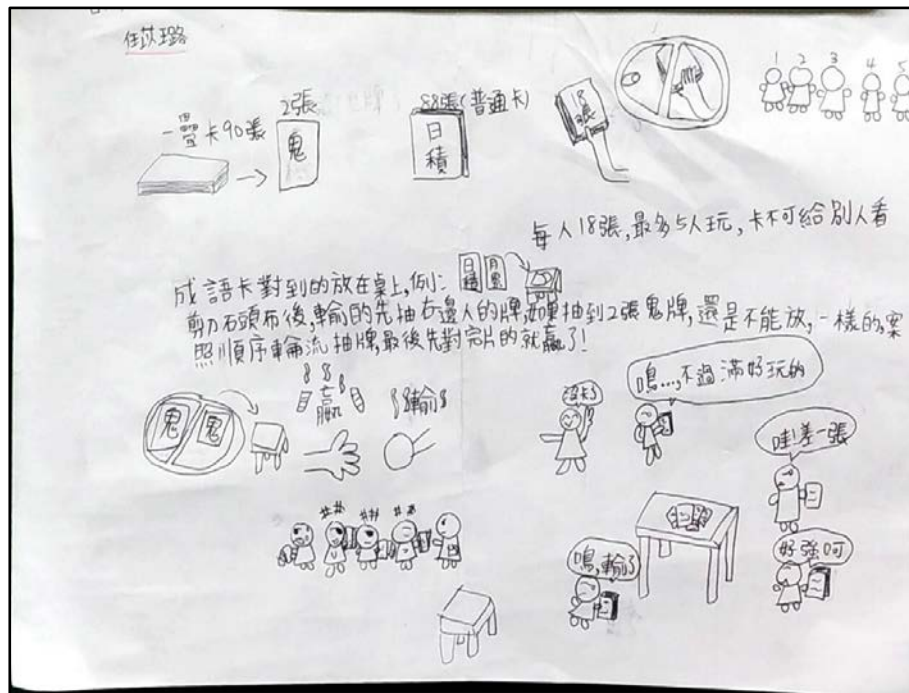 任苡璐
一疊卡90張
2張
鬼
88張(普通卡)
日積
18張
1 2 3 4 5
每人18張,最多5人玩,卡不可給別人看
成語卡對到的放在桌上,例:
日積 月累
剪刀石頭布後,輸的先抽右邊人的牌,如果抽到2張鬼牌,還是不能放,一樣的,案
照順序輪流抽牌,最後先對完片的就贏了!
鬼 鬼
贏
輸
沒卡了
嗚...,不過滿好玩的
哇!差一張
嗚,輸了
好強呵